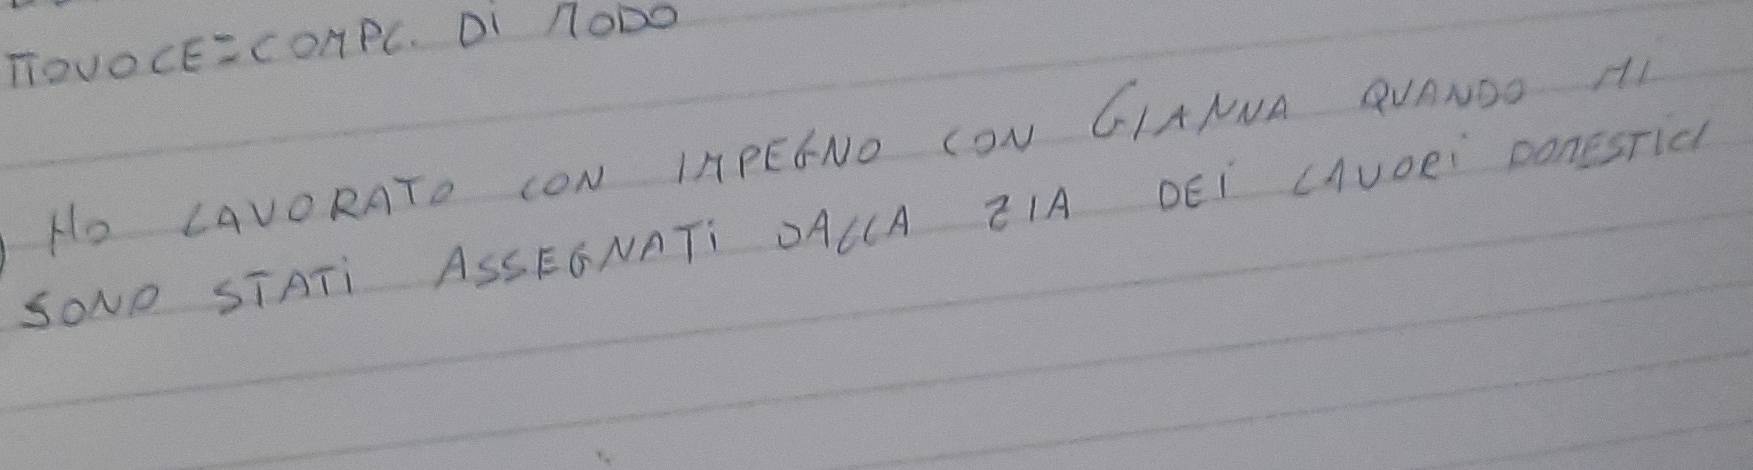 VELOCE=COMPL. DI MODO
HO LAVORATO CON IMPEGNO CON GIANNA QUANDO MI
SONO STATI ASSEGNATI DALLA ZIA DEI LAVORI DOMESTICI